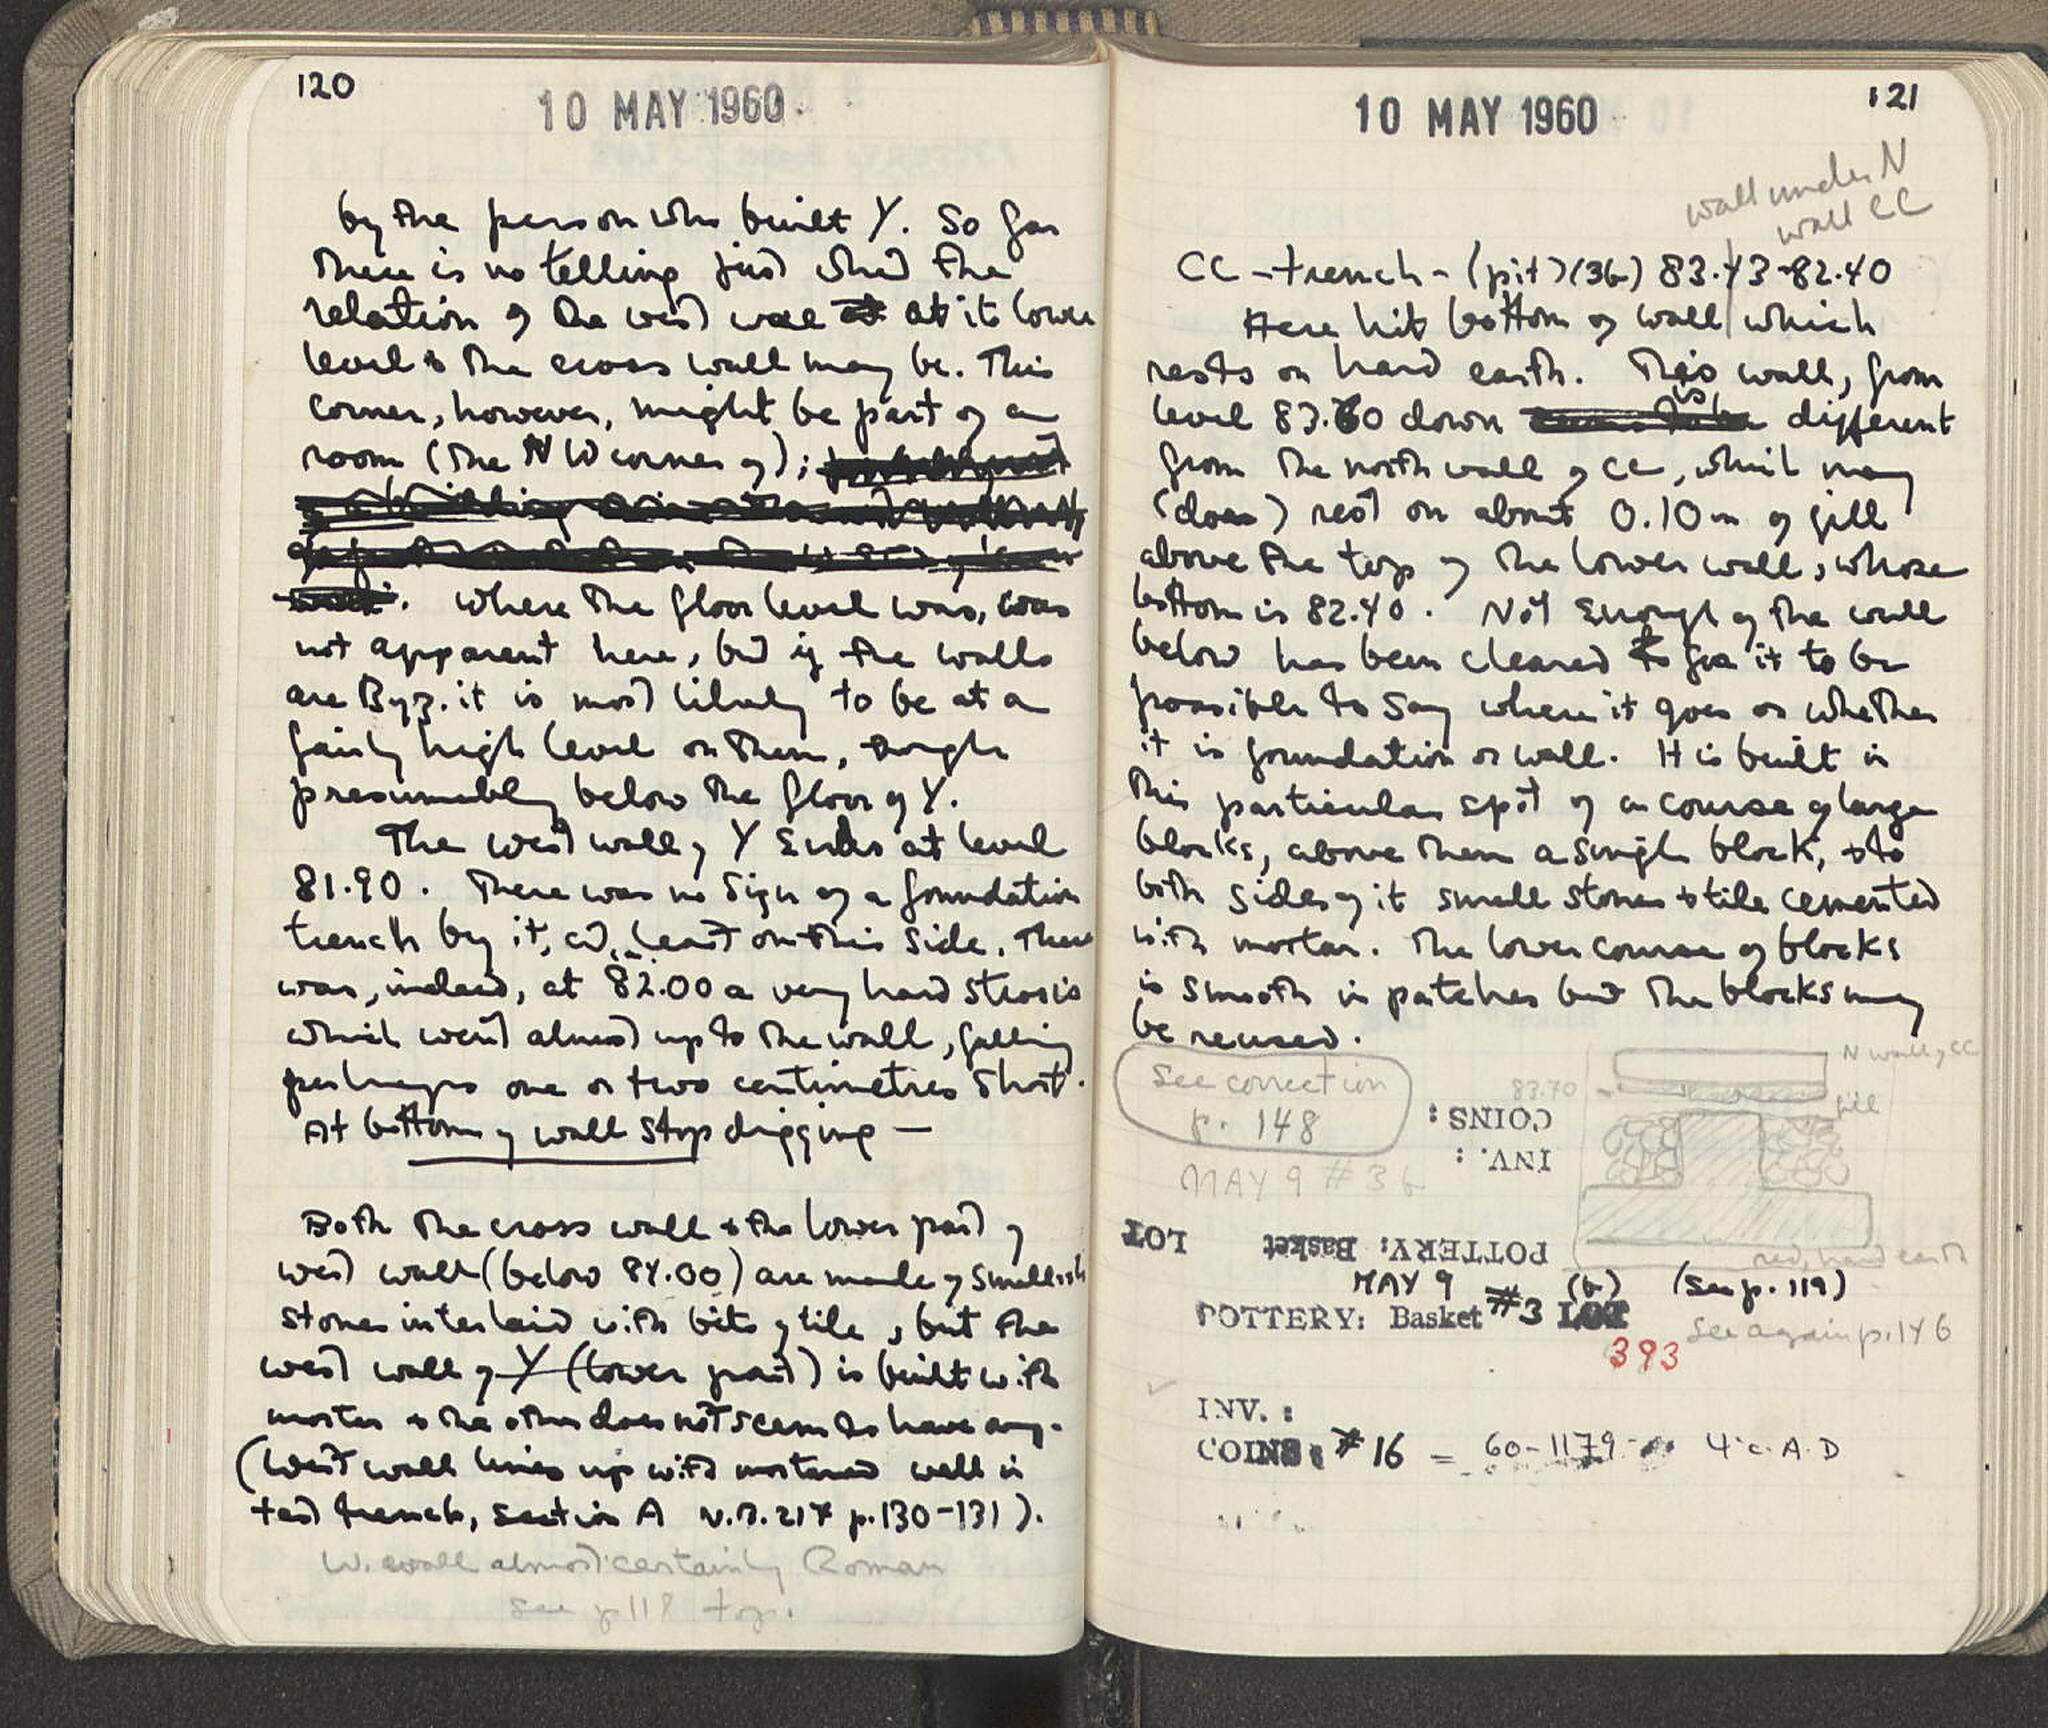 120
10 MAY 1960.
by the person who built Y. So far
there is no telling just what the
relation of the west wall at it lower
level & the cross wall may be. This
corner, however, might be part of a
room (the NW corner of);
Where the floor level was, was
not apparent here, but if the walls
are Byz. it is most likely to be at a
fairly high level on them, though
presumably below the floor of Y.
The west wall of Y ends at level
81.90. There was no sign of a foundation
trench by it, at least on this side. There
was, indeed, at 82.00 a very hard strosis
which went almost up to the wall, falling
perhaps one or two centimetres short.
At bottom of wall stop digging —
Both the cross wall & the lower part of
west wall (below 84.00) are made of smallish
stones interlaid with bits of tile, but the
west wall of Y (lower part) is built with
mortar & the other does not seem to have any.
(West wall lines up with mortared wall in
test trench, section A N.B. 217 p. 130-131).
W. wall almost certainly Roman
see p 118 top.
121
10 MAY 1960
wall under N
wall CC
CC - trench - (pit) (3b) 83.43-82.40
Here hit bottom of wall which
rests on hard earth. This wall, from
level 83.60 down is different
from the north wall of CC, which may
(does) rest on about 0.10 m of fill
above the top of the lower wall, whose
bottom is 82.40. Not enough of the wall
below has been cleared for it to be
possible to say where it goes or whether
it is foundation or wall. It is built in
this particular spot of a course of large
blocks, above them a single block, & to
both sides of it small stones & tile cemented
with mortar. The lower course of blocks
is smooth in patches but the blocks may
be reused.
See correction
p. 148
N wall of CC
83.70
fill
COINS:
INV.:
MAY 9 #3b
POTTERY: Basket LOT
red, hard earth
MAY 9 (b) (see p. 119)
POTTERY: Basket #3 LOT
393
see again p. 146
INV.:
COINS: #16 = 60-1179 - 4th c. A.D